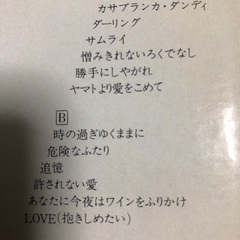 カサブランカ・ダンディ
ダーリング
サムライ
憎みきれないろくでなし
勝手にしやがれ
ヤマトより愛をこめて
B
時の過ぎゆくままに
危険なふたり
追憶
許されない愛
あなたに今夜はワインをふりかけ
LOVE(抱きしめたい)